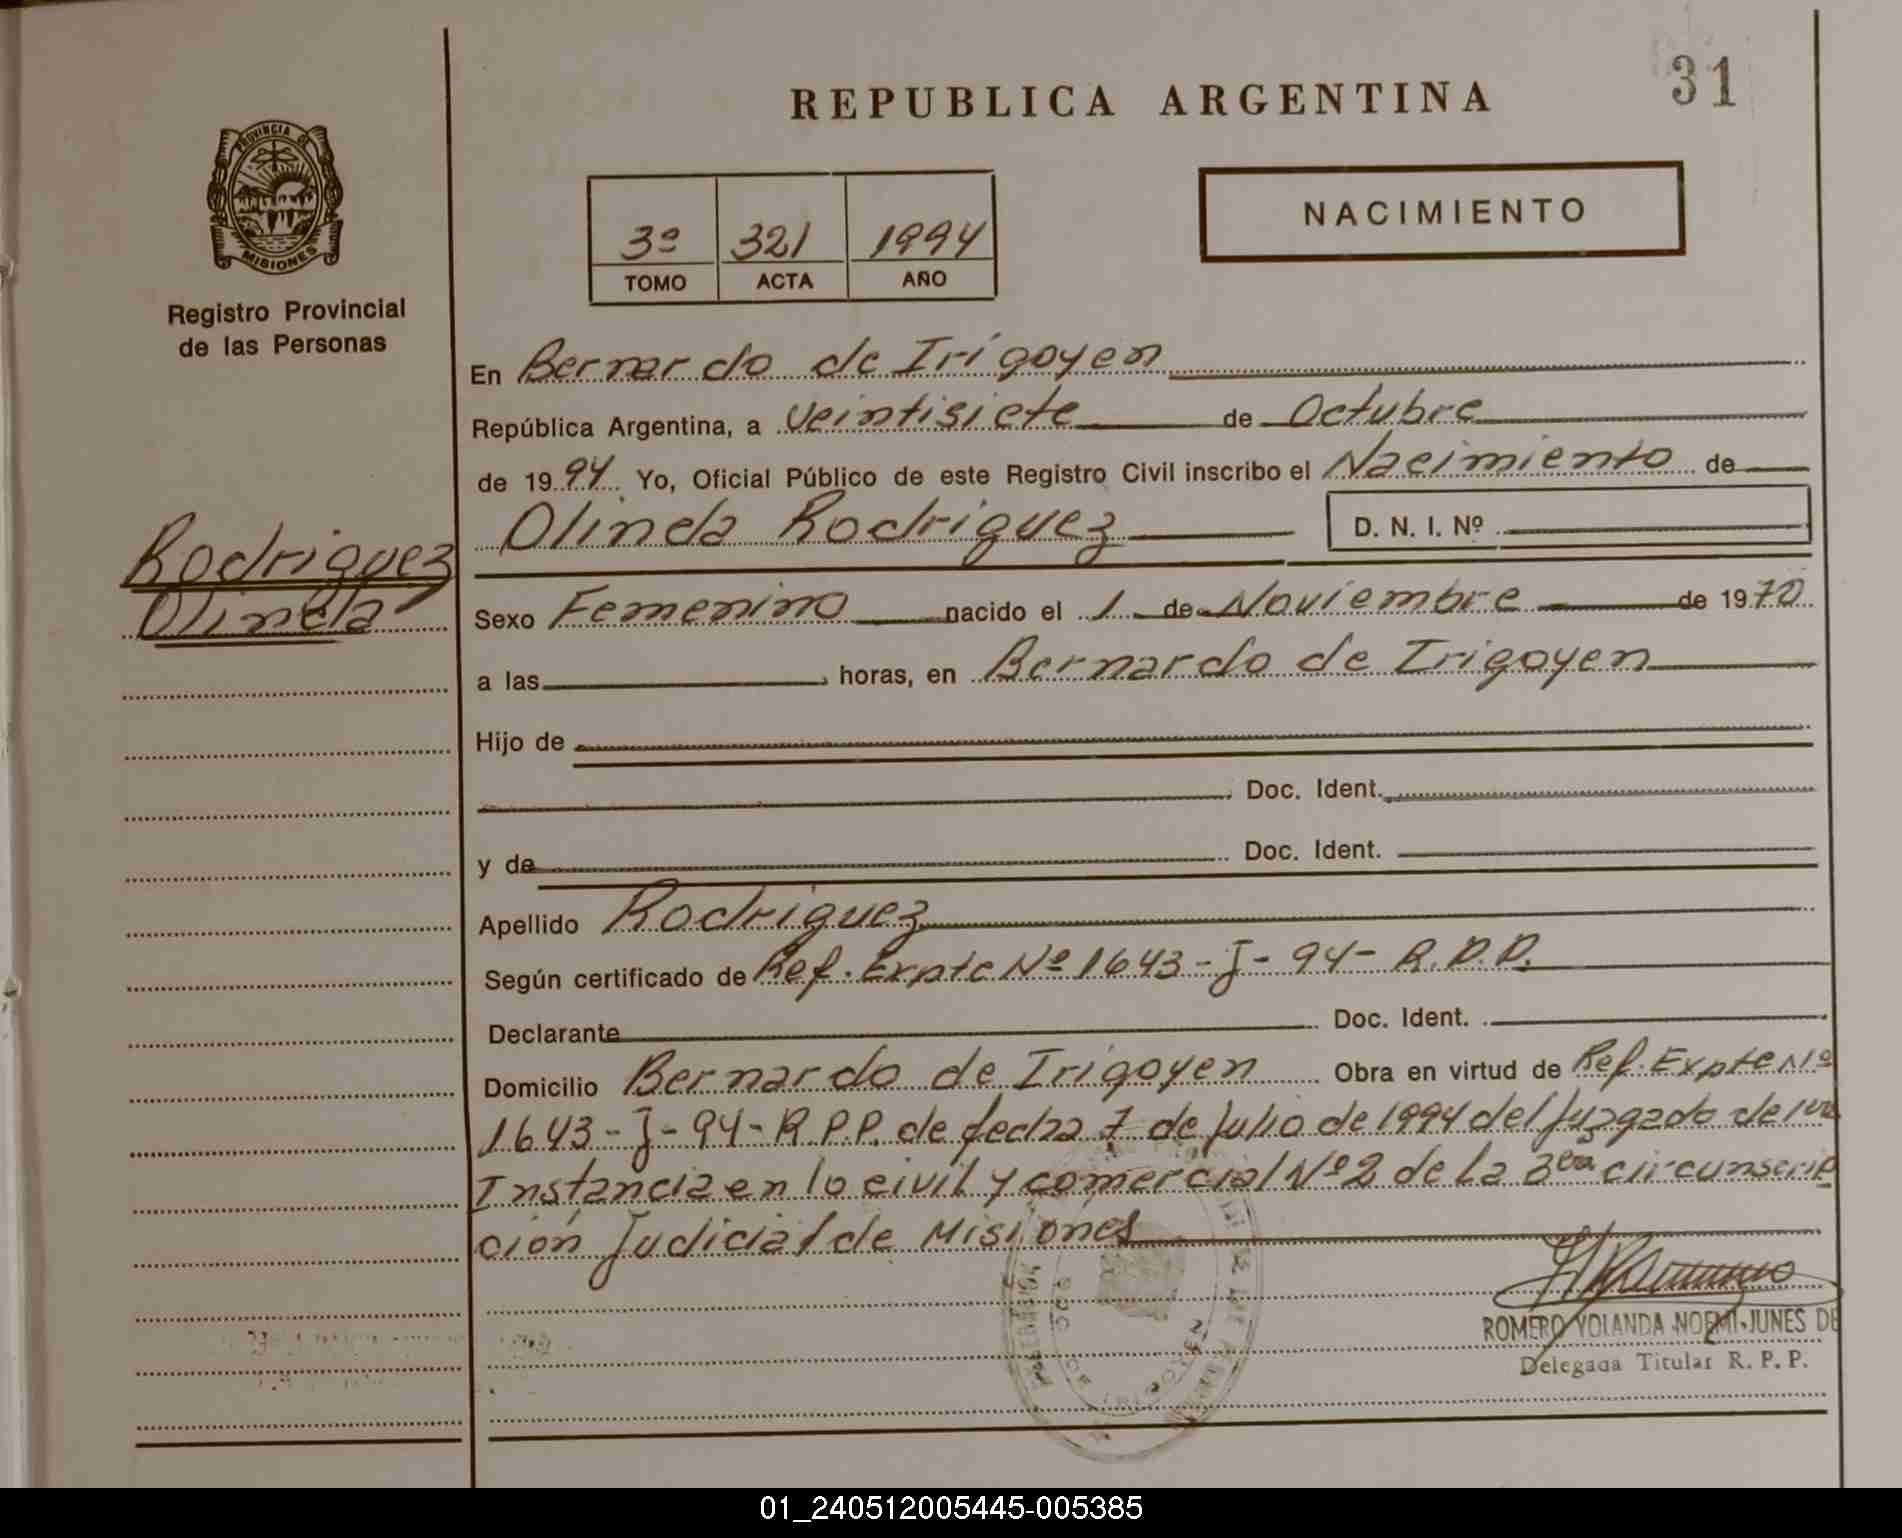 REPUBLICA ARGENTINA
31
PROVINCIA DE
MISIONES
Registro Provincial
de las Personas
3º 321 1994
TOMO ACTA AÑO
NACIMIENTO
En Bernardo de Irigoyen
República Argentina, a veintisiete de Octubre
de 1994. Yo, Oficial Público de este Registro Civil inscribo el Nacimiento de
Olinda Rodriguez D. N. I. Nº
Rodriguez
Olinda
Sexo Femenino nacido el 1 de Noviembre de 1970
a las , horas, en Bernardo de Irigoyen
Hijo de
Doc. Ident.
y de Doc. Ident.
Apellido Rodriguez
Según certificado de Ref. Expte Nº 1643-J-94- R.P.P.
Declarante Doc. Ident.
Domicilio Bernardo de Irigoyen Obra en virtud de Ref. Expte Nº
1643-J-94-R.P.P. de fecha 7 de Julio de 1994 del Juzgado de 1ra
Instancia en lo civil y comercial Nº 2 de la 3era circunscrip
ción Judicial de Misiones
ROMERO YOLANDA NOEMI JUNES DE
Delegada Titular R. P. P.
01_240512005445-005385